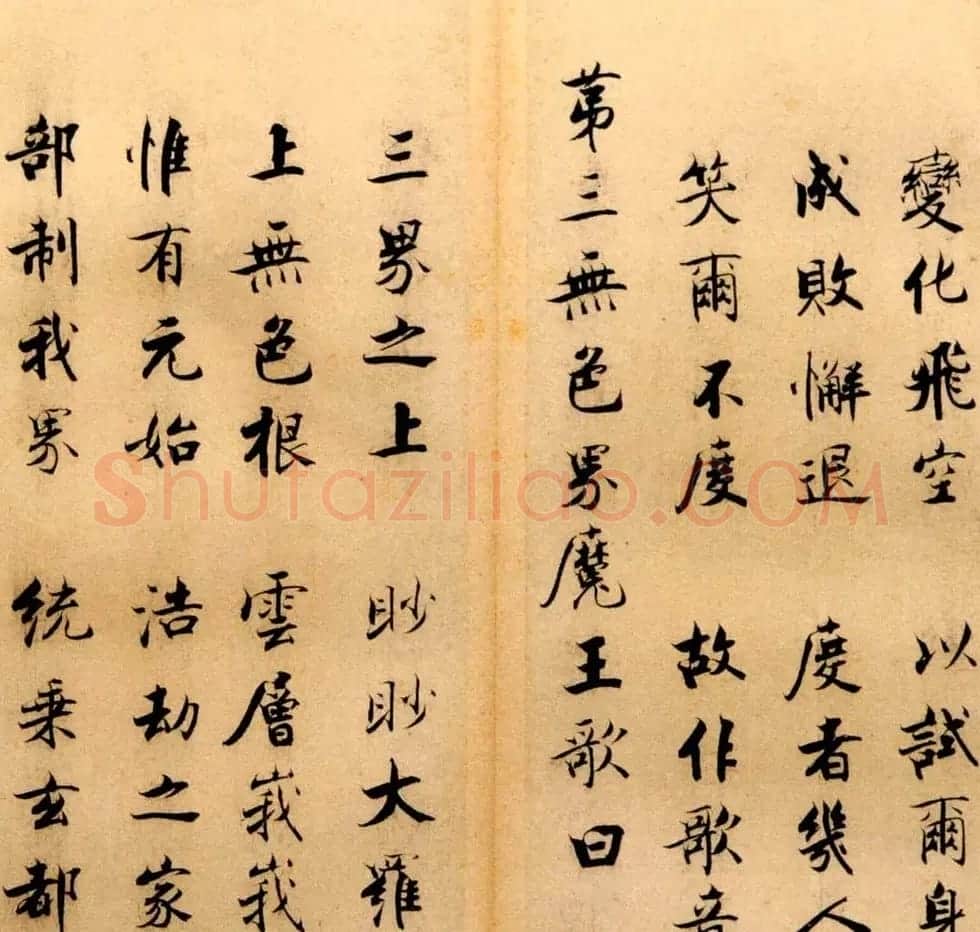 變化飛空 以試爾身
成敗懈退 度者幾人
笑爾不度 故作歌音
第三無色界魔王歌曰
三界之上 眇眇大羅
上無色根 雲層峩峩
惟有元始 浩劫之家
部制我界 統乗玄都
Shufaziliao.COM